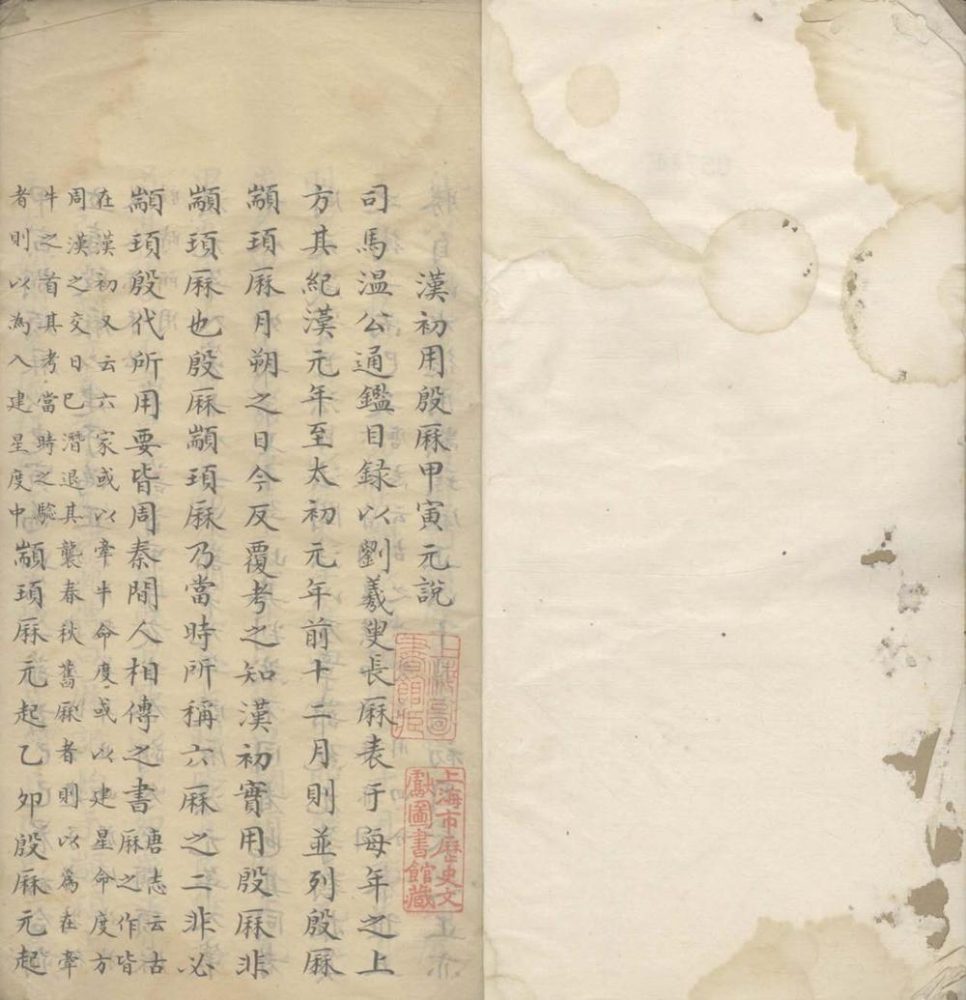 漢初用殷厤甲寅元說
司馬温公通鑑目録以劉羲叟長厤表于每年之上
方其紀漢元年至太初元年前十二月則並列殷厤
顓頊厤月朔之日今反覆考之知漢初實用殷厤非
顓頊厤也殷厤顓頊厤乃當時所稱六厤之二非必
顓頊殷代所用要皆周秦間人相傳之書唐志云古
厤之作皆
在漢初又云六家或以牽牛命度或以建星命度方
周漢之交日已潛退其襲春秋舊厤者則以爲在牽
牛之首其考當時之驗
者則以為入建星度中顓頊厤元起乙卯殷厤元起
上海市歷史文
獻圖書館藏